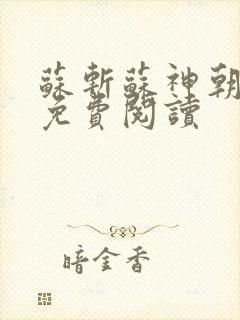 蘇斬蘇神朝
免費閱讀
暗金香